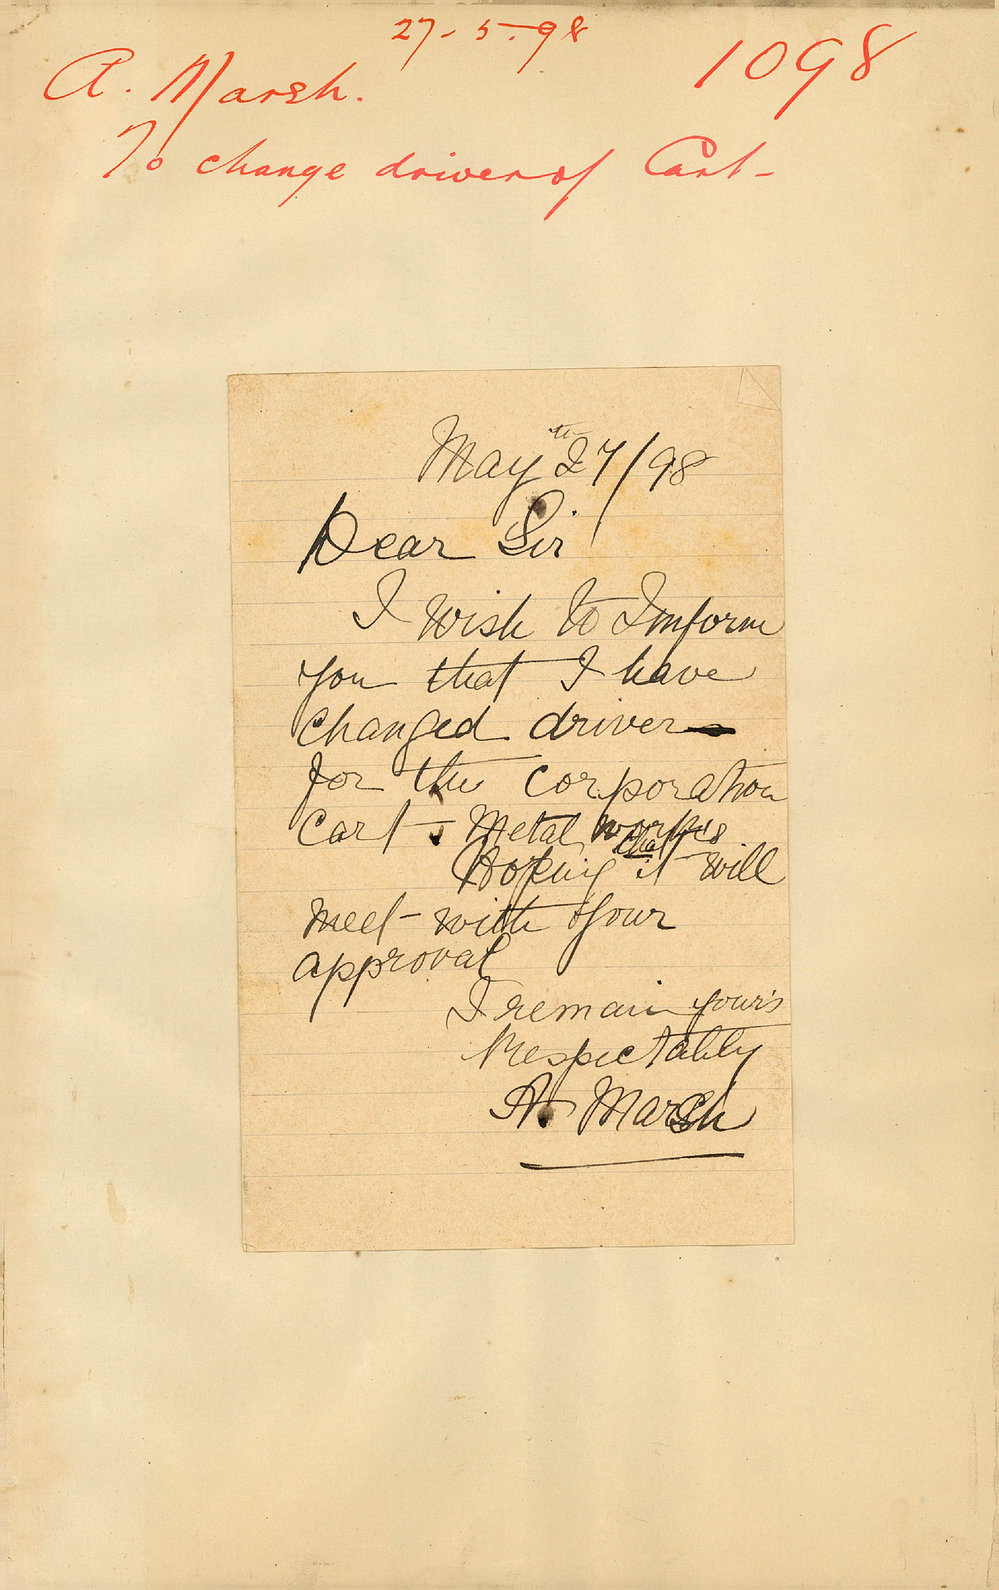 27-5-98
1098
A. Marsh.
To change driver of Cart-
May 27th/98
Dear Sir
I wish to Imform
you that I have
changed driver
for the corporation
Cart - Metal works
Hoping that it will
meet with your
approval
I remain your's
Respectably
A. Marsh